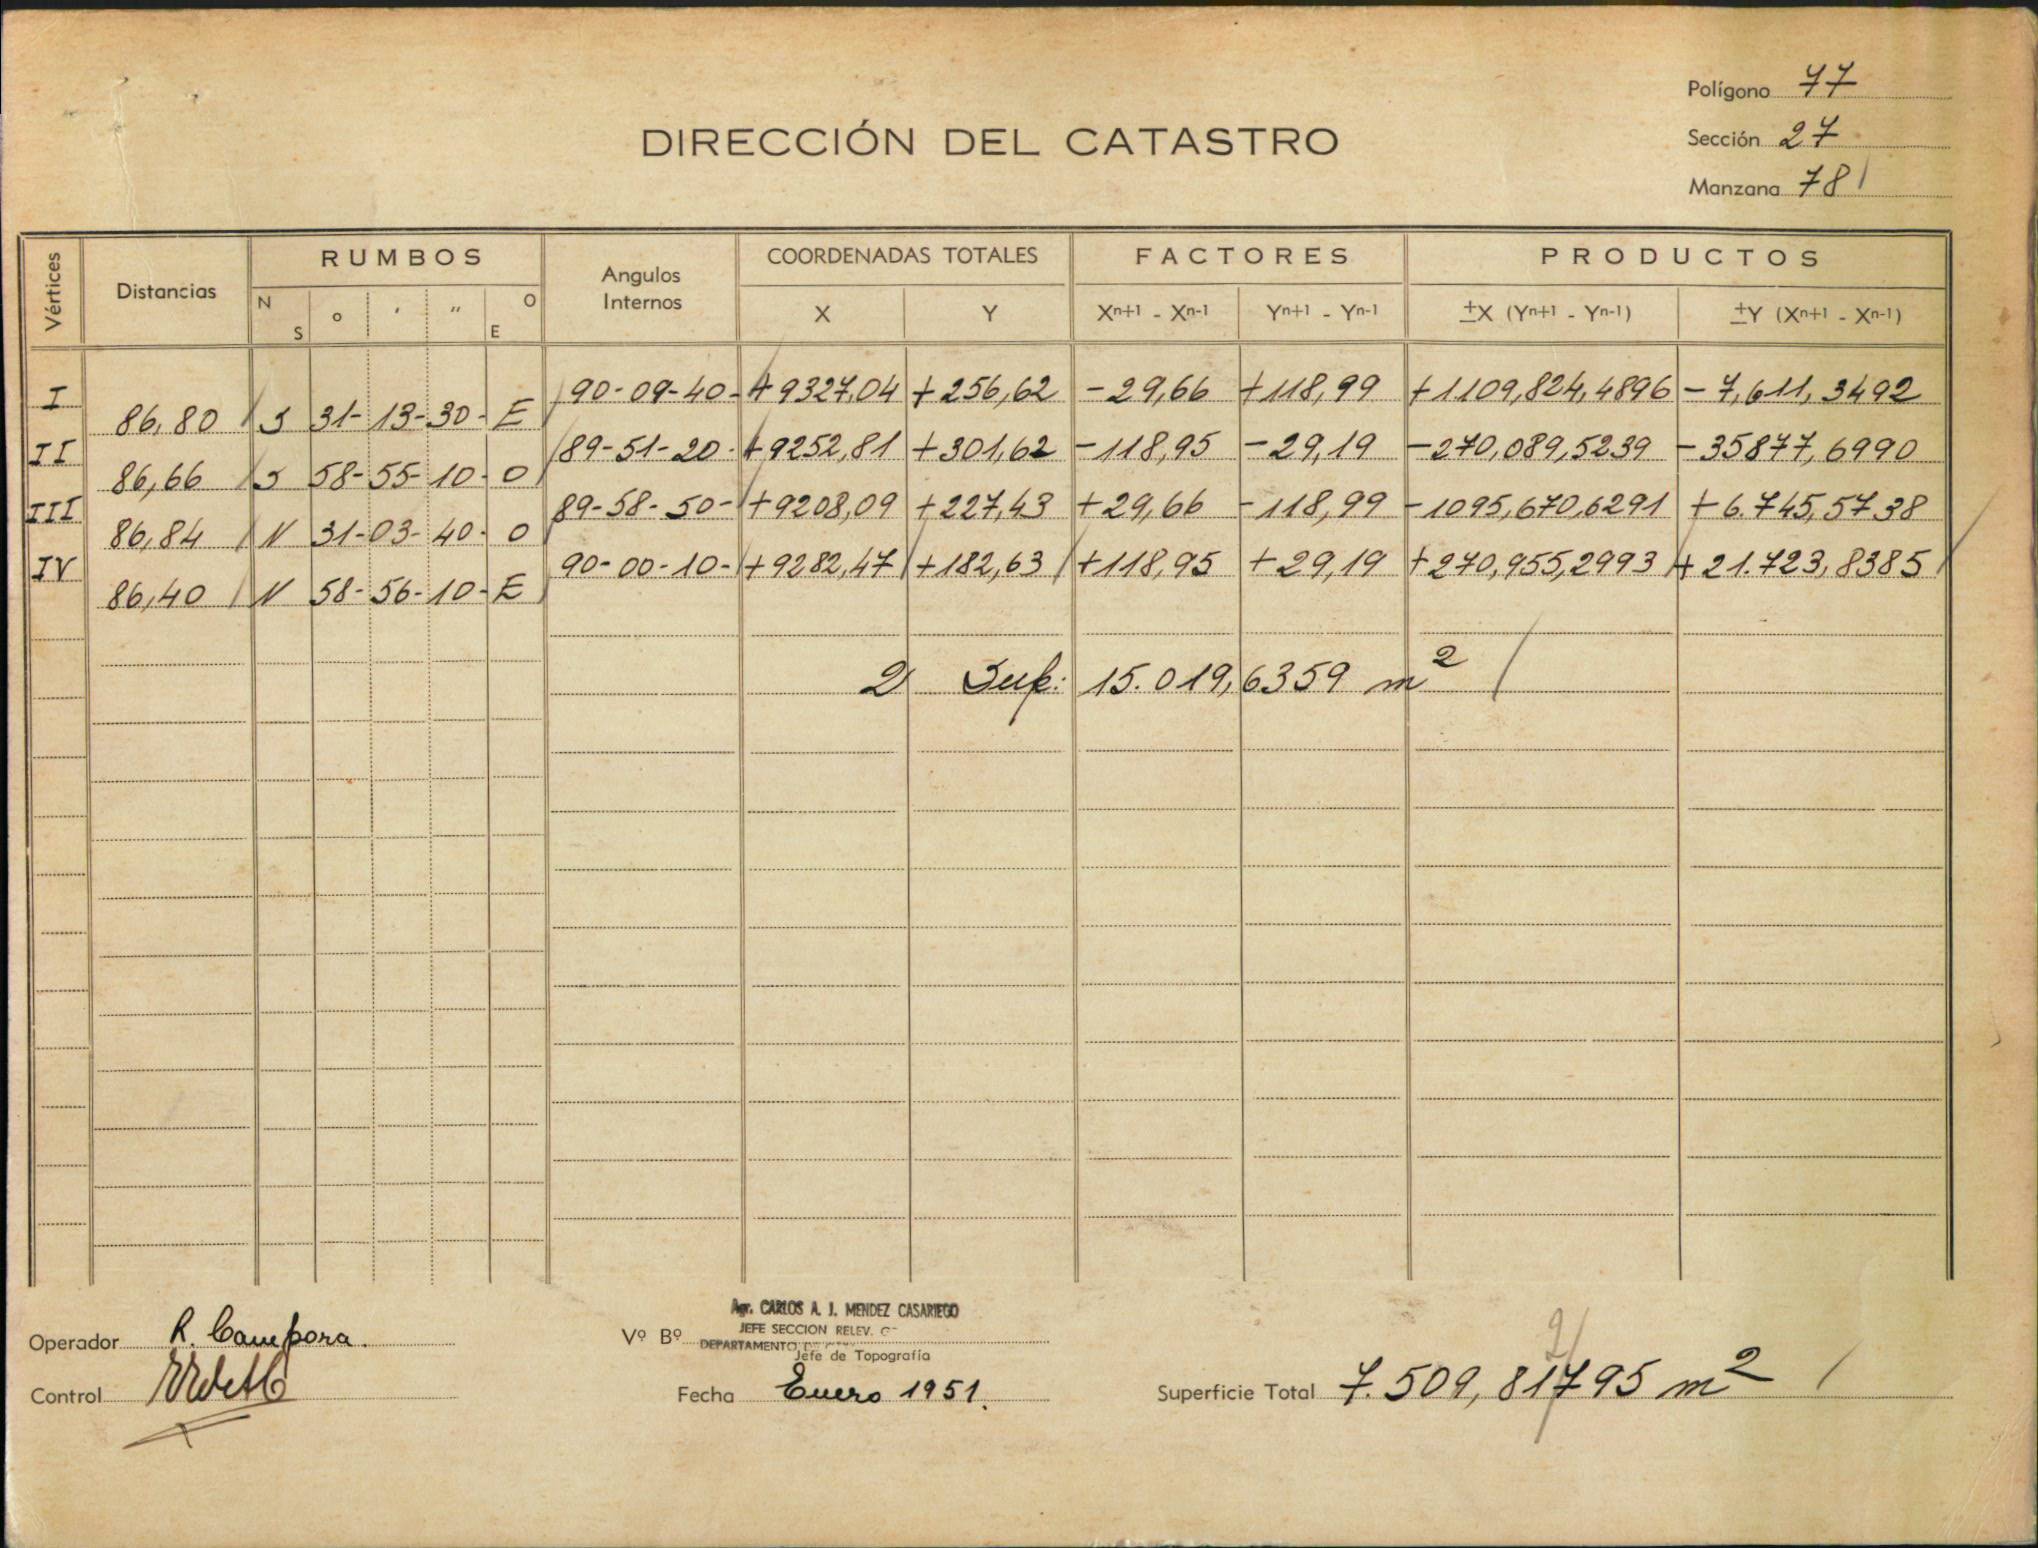 Polígono 77
DIRECCIÓN DEL CATASTRO
Sección 27
Manzana 78
Vértices Distancias RUMBOS Angulos Internos COORDENADAS TOTALES FACTORES PRODUCTOS
N S o ' " O E X Y Xn+1 - Xn-1 Yn+1 - Yn-1 ±X (Yn+1 - Yn-1) ±Y (Xn+1 - Xn-1)
I 90-09-40- +9327,04 +256,62 -29,66 +118,99 +1109,824,4896 -7,611,3492
86,80 S 31-13-30- E
II 89-51-20- +9252,81 +301,62 -118,95 -29,19 -270,089,5239 -35877,6990
86,66 S 58-55-10- O
III 89-58-50- +9208,09 +227,43 +29,66 -118,99 -1095,670,6291 +6.745,5738
86,84 N 31-03-40- O
IV 90-00-10- +9282,47 +182,63 +118,95 +29,19 +270,955,2993 +21.723,8385
86,40 N 58-56-10- E
2 Sup: 15.019,6359 m2
Agr. CARLOS A. J. MENDEZ CASARIEGO
JEFE SECCION RELEV.
Operador R. Campora. Vº Bº DEPARTAMENTO
Jefe de Topografía
Control Fecha Enero 1951. Superficie Total 7.509,81795 m2